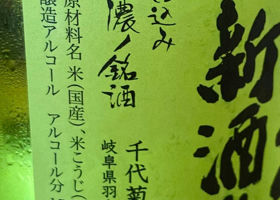 新酒
仕込み
濃ノ銘酒
千代菊
岐阜県羽
原材料名 米(国産)、米こうじ(
醸造アルコール アルコール分